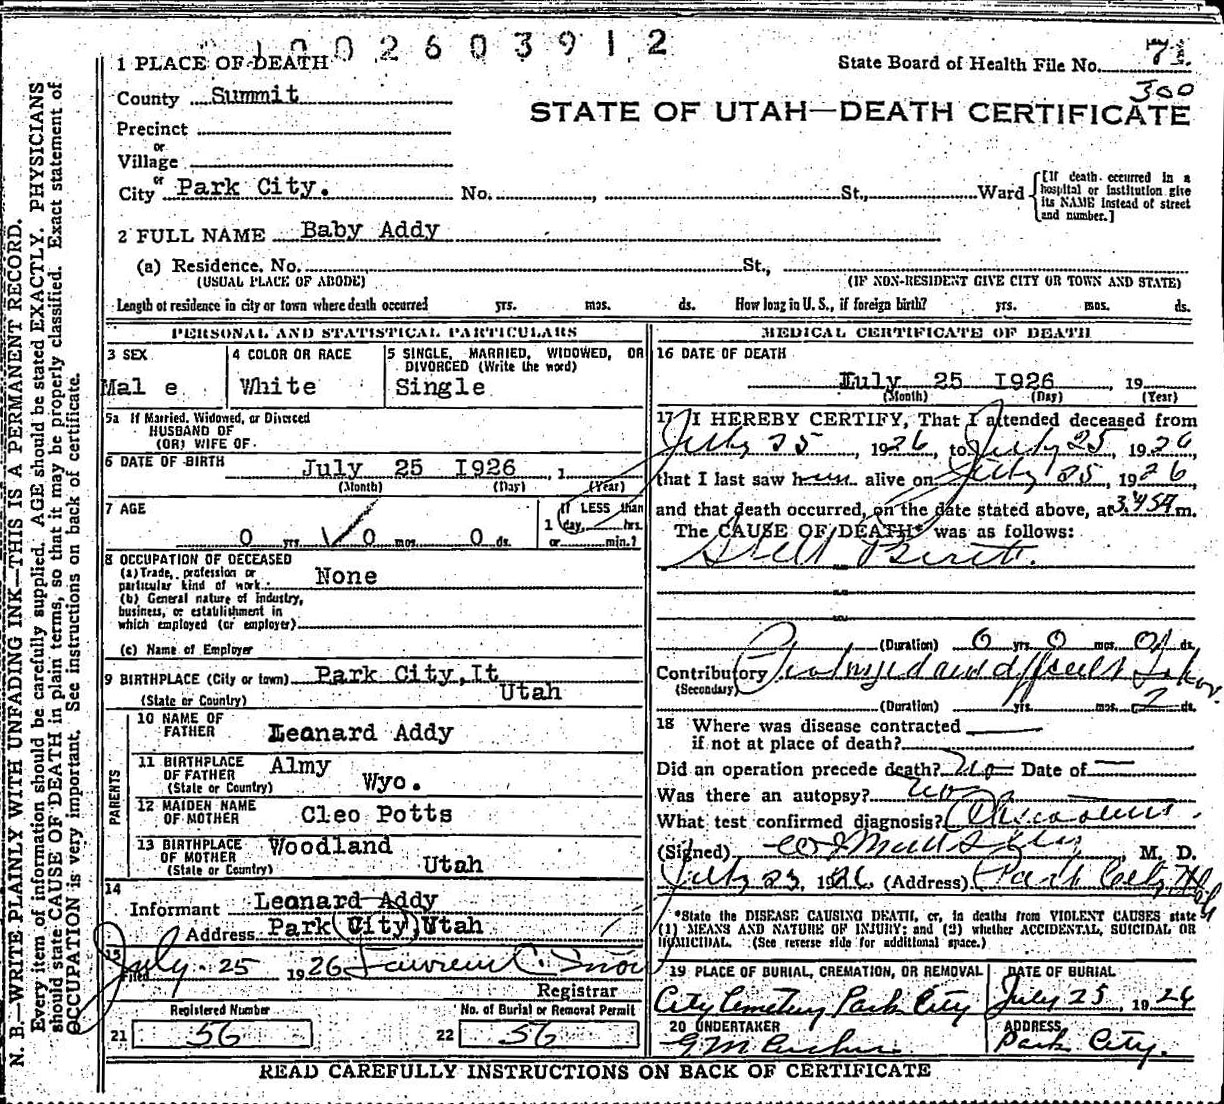 1002603912
1 PLACE OF DEATH
State Board of Health File No. 71.
300
County Summit
STATE OF UTAH—DEATH CERTIFICATE
Precinct
or
Village
or
City Park City. No. , St., Ward
[If death occurred in a hospital or institution give its NAME instead of street and number.]
2 FULL NAME Baby Addy
(a) Residence. No. St.,
(USUAL PLACE OF ABODE) (IF NON-RESIDENT GIVE CITY OR TOWN AND STATE)
Length of residence in city or town where death occurred yrs. mos. ds. How long in U. S., if foreign birth? yrs. mos. ds.
PERSONAL AND STATISTICAL PARTICULARS
3 SEX
Mal e
4 COLOR OR RACE
White
5 SINGLE, MARRIED, WIDOWED, OR
DIVORCED (Write the word)
Single
5a If Married, Widowed, or Divorced
HUSBAND OF
(OR) WIFE OF
6 DATE OF BIRTH July 25 I926 , 1
(Month) (Day) (Year)
7 AGE
0 yrs 0 mos. 0 ds.
If LESS than
1 day, hrs.
or min.?
8 OCCUPATION OF DECEASED
(a) Trade, profession or
particular kind of work None
(b) General nature of Industry,
business, or establishment in
which employed (or employer)
(c) Name of Employer
9 BIRTHPLACE (City or town) Park City,It
(State or Country) Utah
PARENTS
10 NAME OF
FATHER Leonard Addy
11 BIRTHPLACE
OF FATHER
(State or Country) Almy
Wyo.
12 MAIDEN NAME
OF MOTHER Cleo Potts
13 BIRTHPLACE
OF MOTHER
(State or Country) Woodland
Utah
14
Informant Leonard Addy
Address Park City, Utah
15
Filed July 25 1926 Lawrence C. Snow
Registrar
Registered Number
21 56
No. of Burial or Removal Permit
22 56
MEDICAL CERTIFICATE OF DEATH
16 DATE OF DEATH
July 25 I926 , 19
(Month) (Day) (Year)
17 I HEREBY CERTIFY, That I attended deceased from
July 25 , 1926, to July 25, 1926
that I last saw h alive on July 25, 1926
and that death occurred, on the date stated above, at m.
The CAUSE OF DEATH* was as follows:
Still Birth.
(Duration) 0 yrs. 0 mos. ds.
Contributory Prolonged and difficult Labor.
(Secondary)
(Duration) yrs. mos. 2 ds.
18 Where was disease contracted
if not at place of death?
Did an operation precede death? No Date of —
Was there an autopsy? no
What test confirmed diagnosis?
(Signed) , M. D.
July 25, 1926. (Address) Park City Utah
*State the DISEASE CAUSING DEATH, or, in deaths from VIOLENT CAUSES state
(1) MEANS AND NATURE OF INJURY; and (2) whether ACCIDENTAL, SUICIDAL OR
HOMICIDAL. (See reverse side for additional space.)
19 PLACE OF BURIAL, CREMATION, OR REMOVAL
City Cemetery Park City
DATE OF BURIAL
July 25 1926
20 UNDERTAKER
G M
ADDRESS
Park City.
READ CAREFULLY INSTRUCTIONS ON BACK OF CERTIFICATE
N. B.—WRITE PLAINLY WITH UNFADING INK—THIS IS A PERMANENT RECORD.
Every item of information should be carefully supplied. AGE should be stated EXACTLY. PHYSICIANS
should state CAUSE OF DEATH in plain terms, so that it may be properly classified. Exact statement of
OCCUPATION is very important. See instructions on back of certificate.